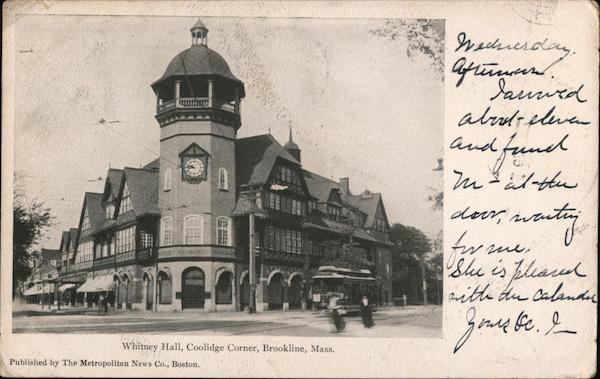 Wednesday.
Afternoon.
I arrived
about eleven
and found
M - at the
door, waiting
for me.
She is pleased
with the calander
Yours &c. I
Whitney Hall, Coolidge Corner, Brookline, Mass.
Published by The Metropolitan News Co., Boston.